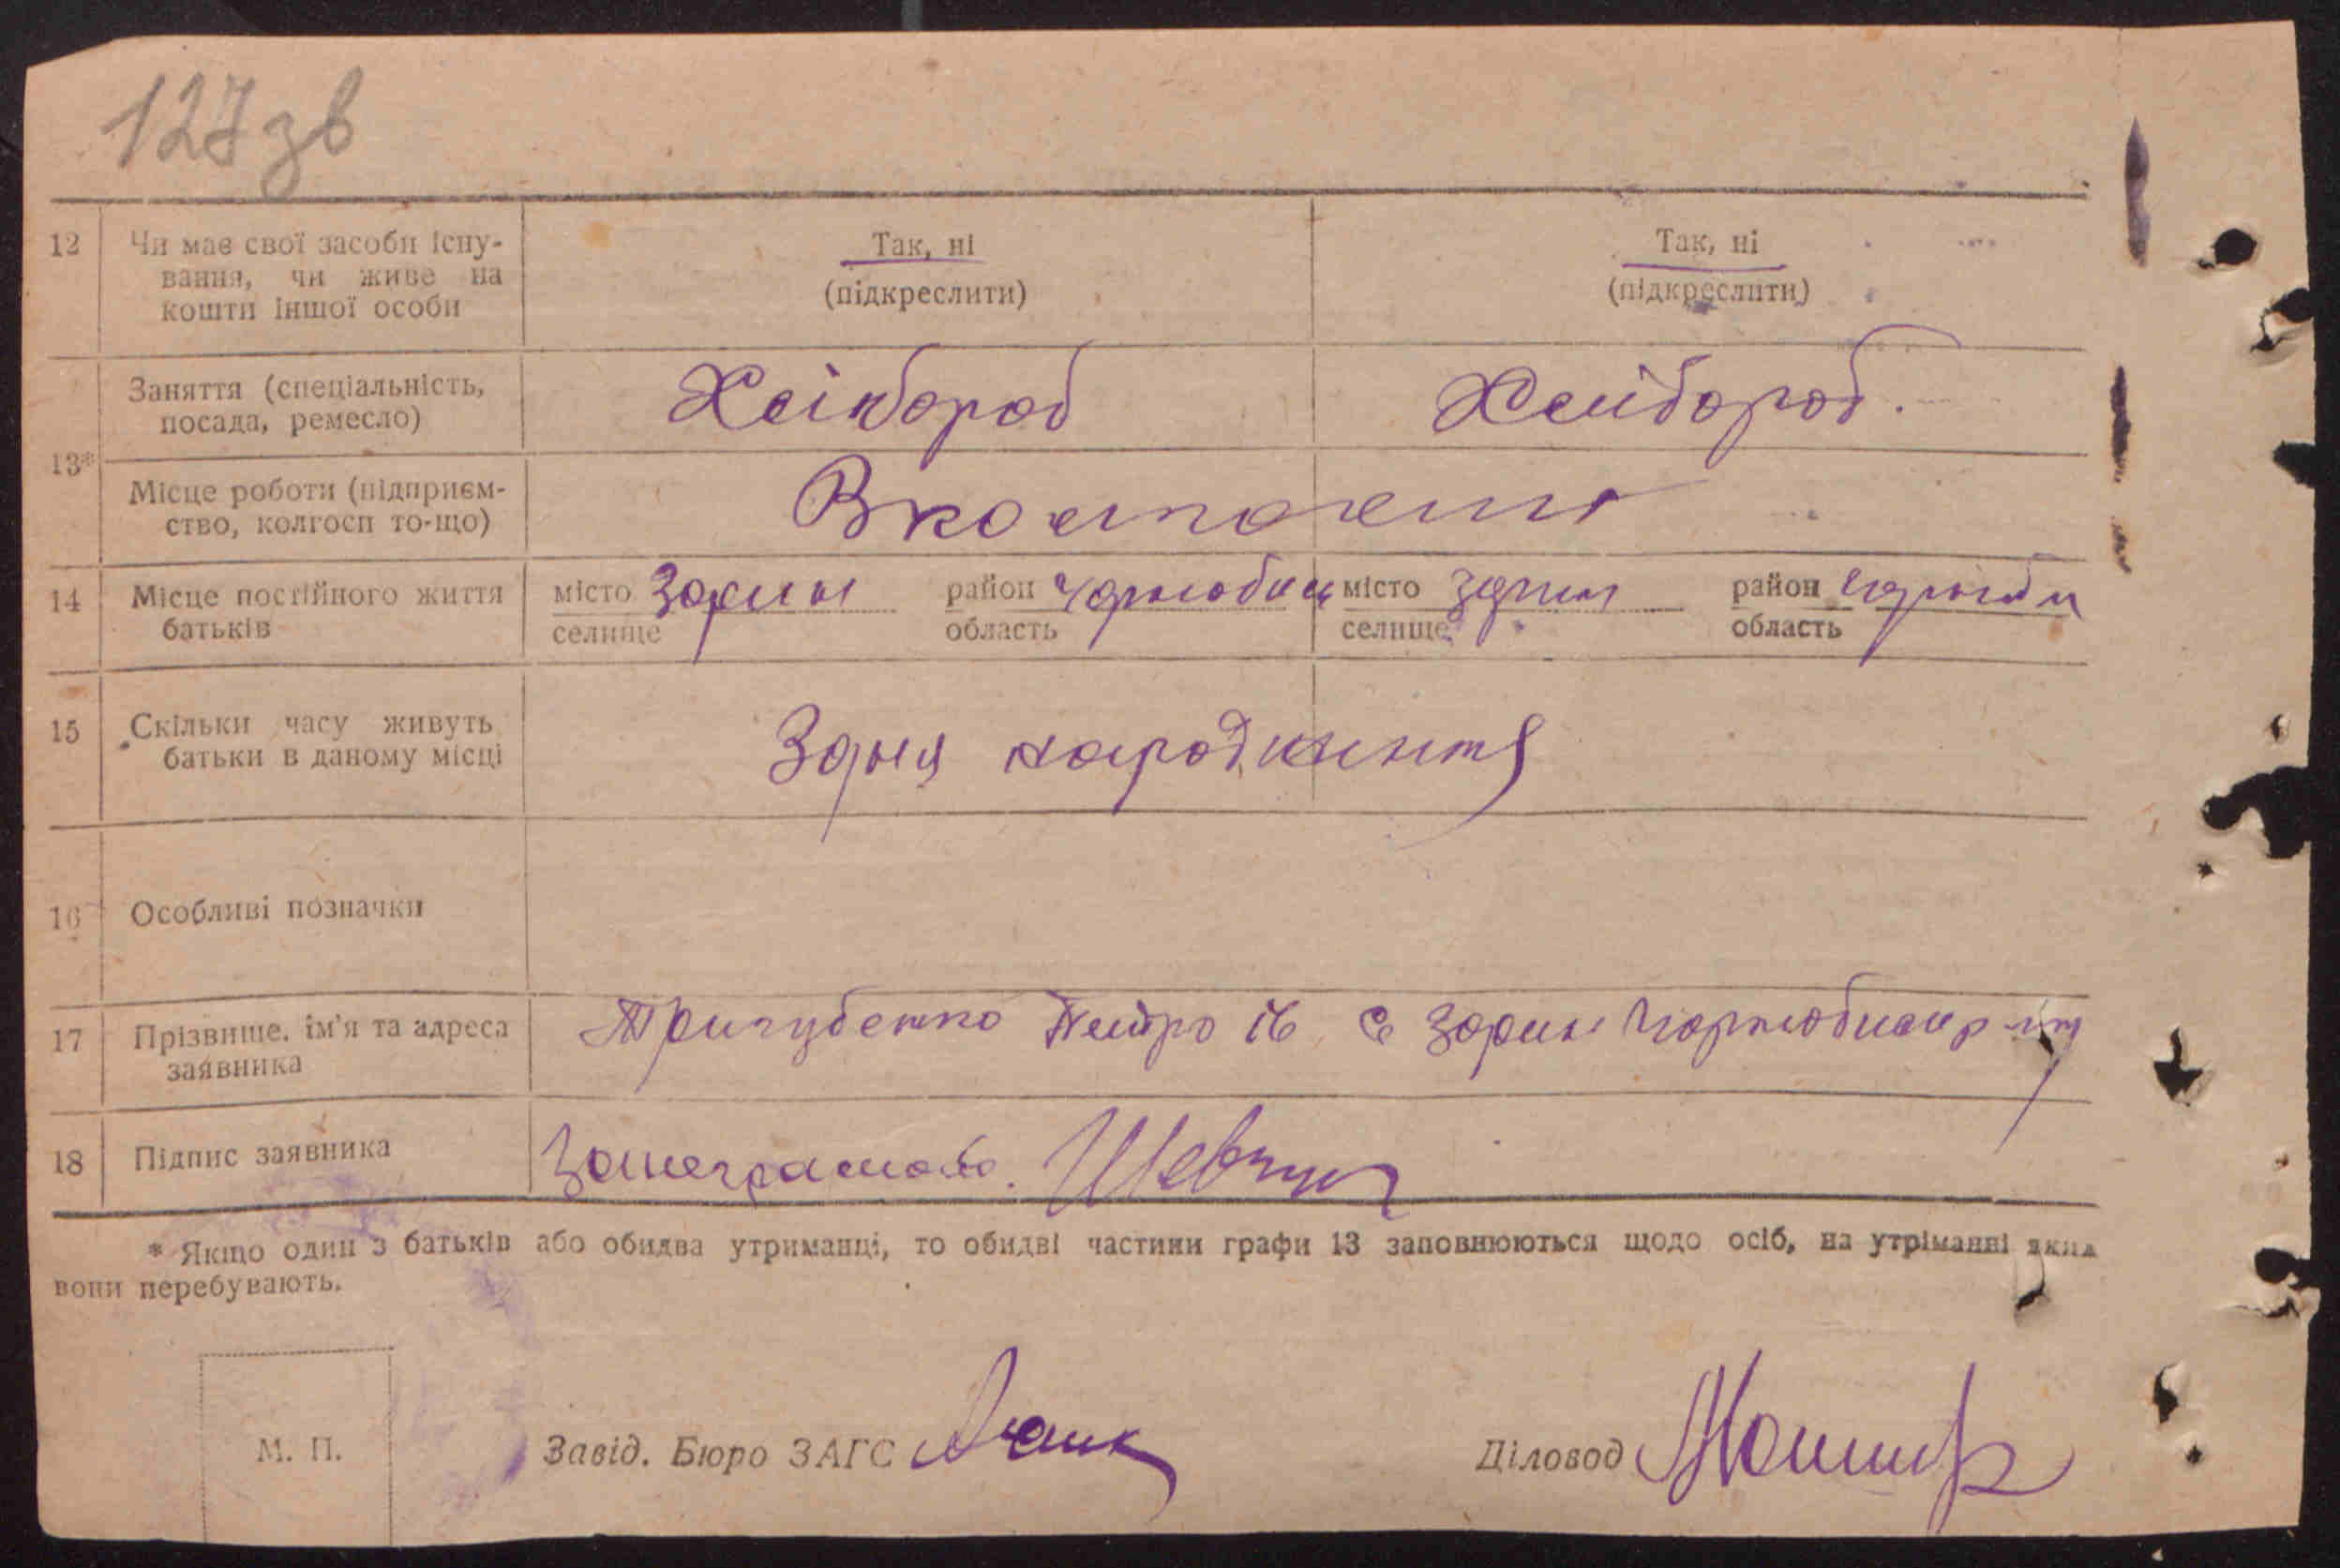 127 зв
12 Чи має свої засоби існу-
вання, чи живе на
кошти іншої особи
Так, ні
(підкреслити)
Так, ні
(підкреслити)
13*
Заняття (спеціальність,
посада, ремесло)
Хлібороб
Хлібороб.
Місце роботи (підприєм-
ство, колгосп то-що)
14 Місце постійного життя
батьків
місто Зорин район Чорнобил
селище область
місто Зорин район Чорнобил
селище область
15 Скільки часу живуть
батьки в даному місці
Здня народження
16 Особливі позначки
17 Прізвище, ім'я та адреса
заявника
Тригубенко Петро Ів с Зорин Чорнобил р-ну
18 Підпис заявника
Занеграмот. Шевчук
* Якщо один з батьків або обидва утриманці, то обидві частини графи 13 заповнюються щодо осіб, на утріманні яких
вони перебувають.
М. П.
Завід. Бюро ЗАГС
Діловод